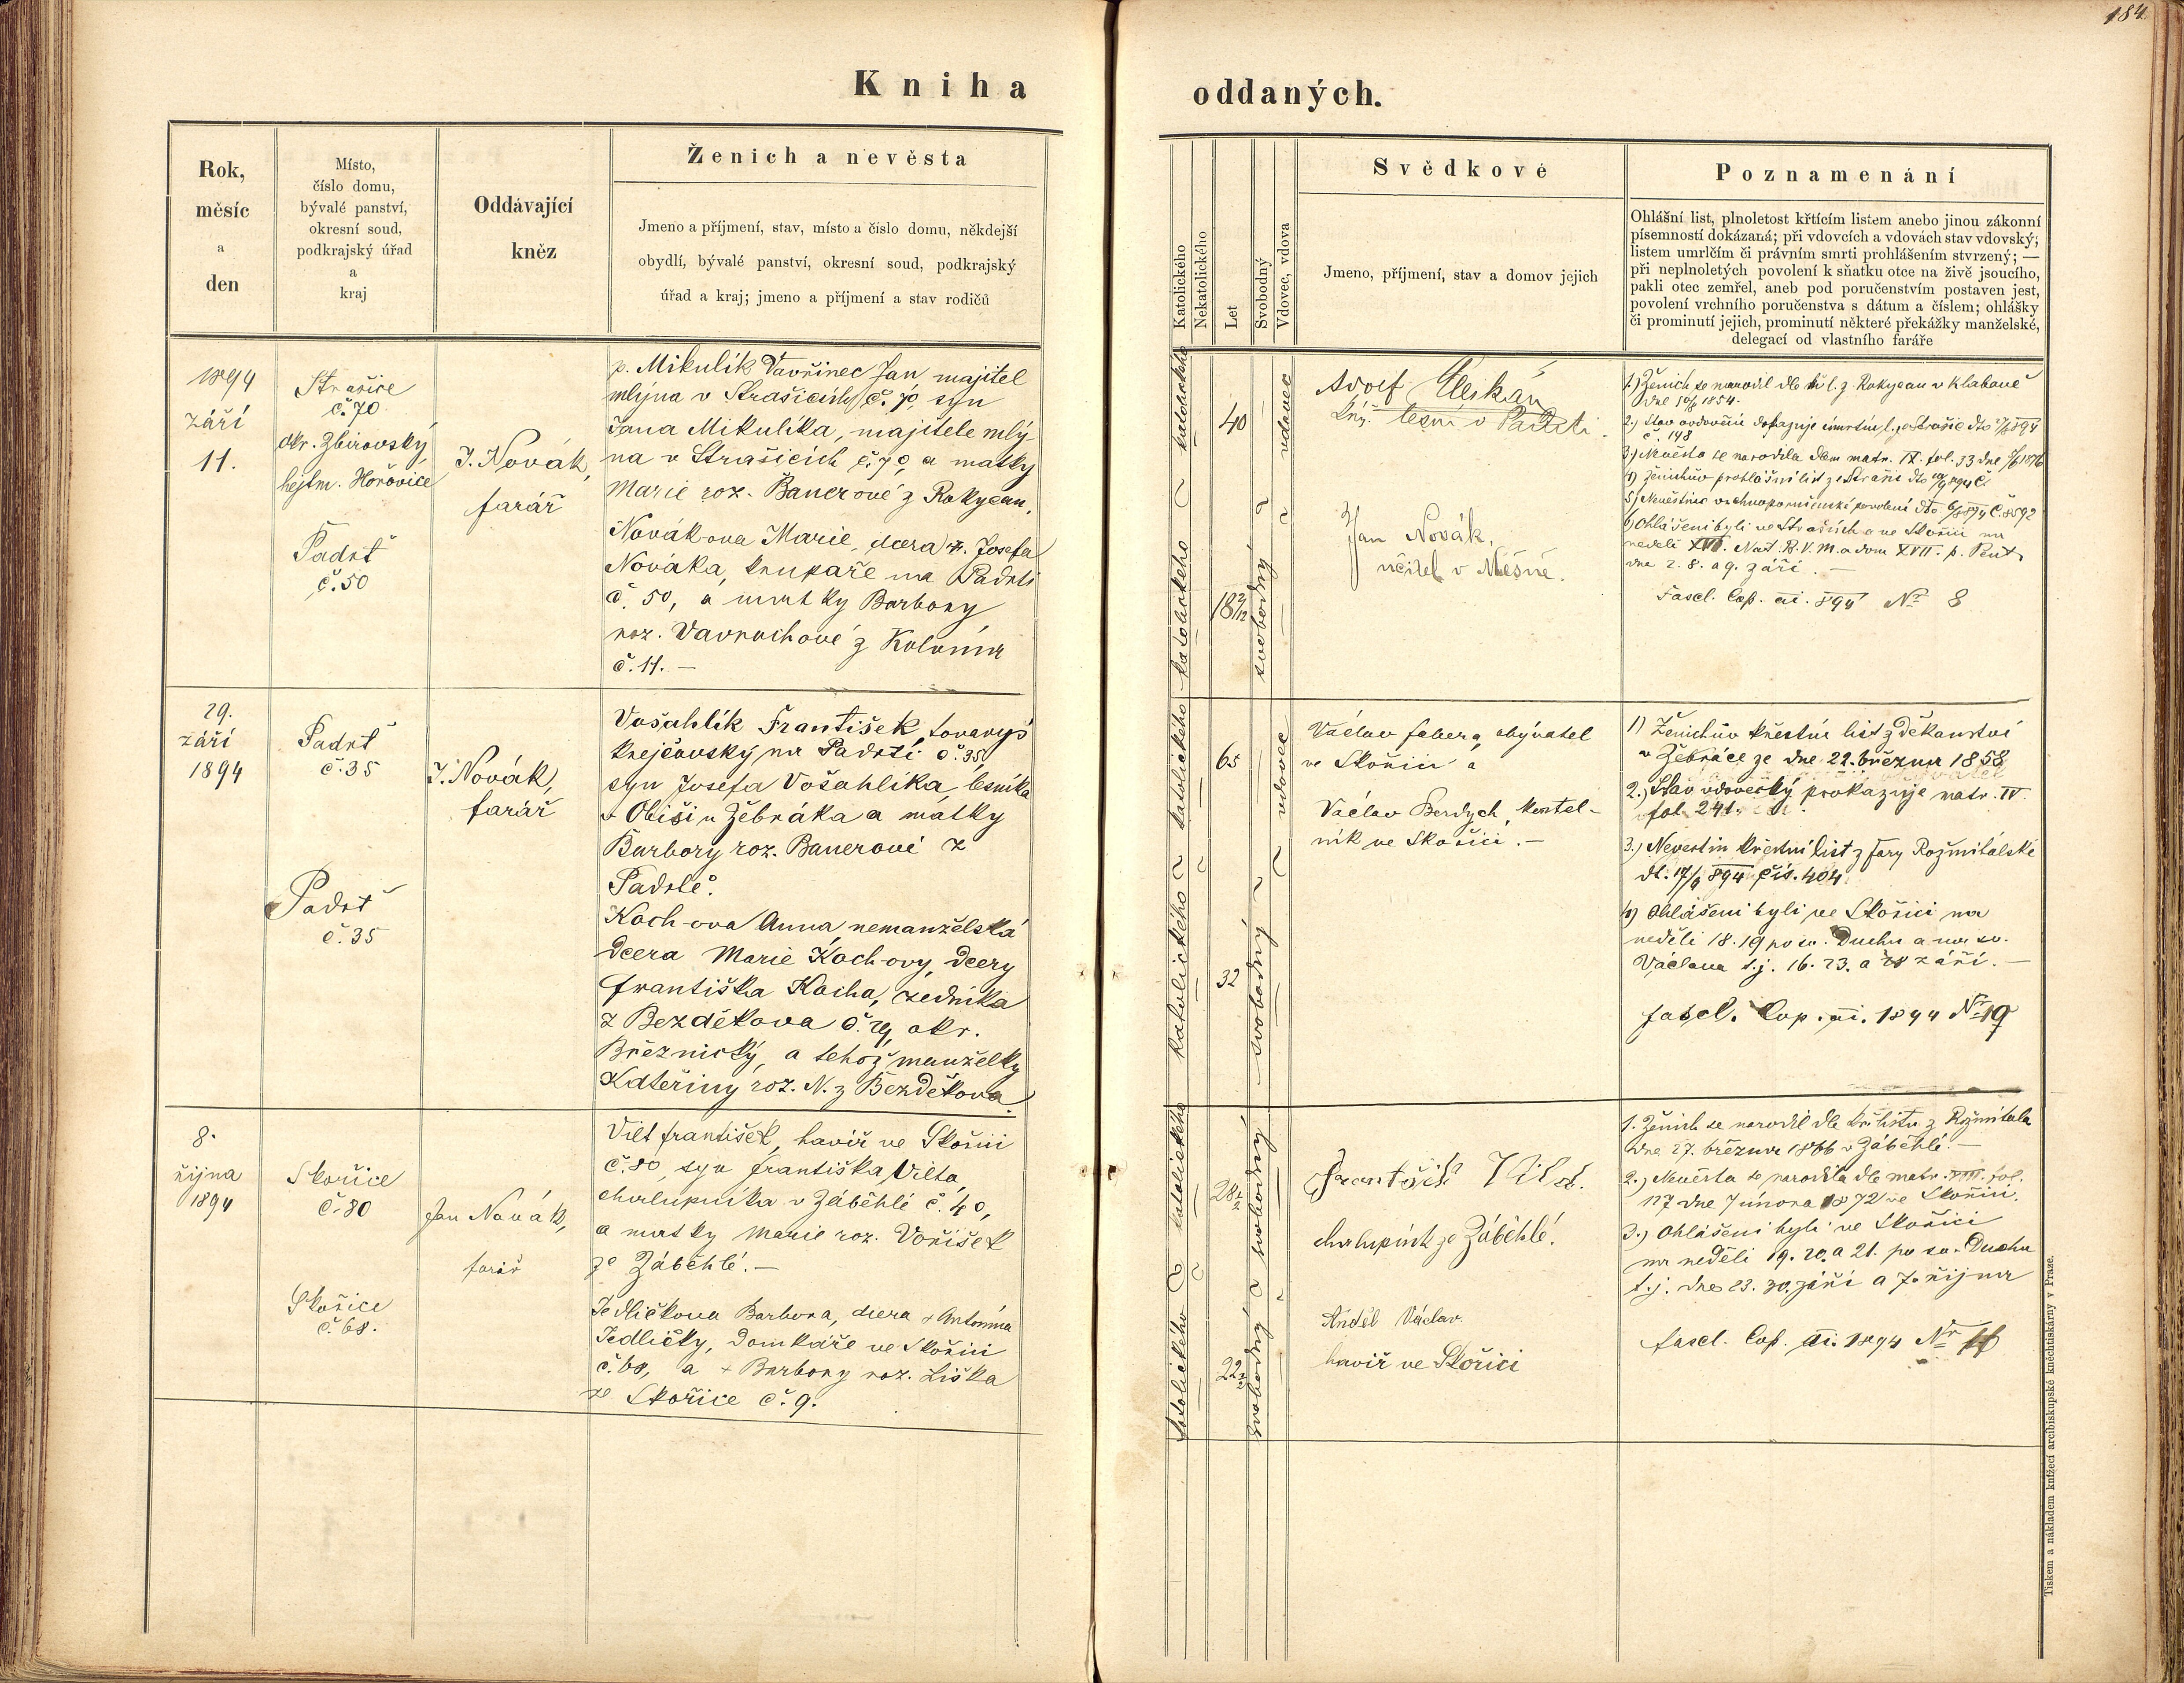 184.
Kniha oddaných.
Rok,
měsíc
a
den
Místo,
číslo domu,
bývalé panství,
okresní soud,
podkrajský úřad
a
kraj
Oddávající
kněz
Ženich a nevěsta
Jmeno a příjmení, stav, místo a číslo domu, někdejší
obydlí, bývalé panství, okresní soud, podkrajský
úřad a kraj; jmeno a příjmení a stav rodičů
Katolického
Nekatolického
Let
Svobodný
Vdovec, vdova
Svědkové
Jmeno, příjmení, stav a domov jejich
Poznamenání
Ohlášní list, plnoletost křtícím listem anebo jinou zákonní
písemností dokázaná; při vdovcích a vdovách stav vdovský;
listem umrlčím či právním smrti prohlášením stvrzený; —
při neplnoletých povolení k sňatku otce na živě jsoucího,
pakli otec zemřel, aneb pod poručenstvím postaven jest,
povolení vrchního poručenstva s dátum a číslem; ohlášky
či prominutí jejich, prominutí některé překážky manželské,
delegací od vlastního faráře
1894
září
11.
Strašice
č. 70
okr. Zbirovský
hejtm. Hořovice
Padrť
č. 50
J. Novák,
farář
p. Mikulík Vavřinec Jan majitel
mlýna v Strašicích č. 70, syn
Jana Mikulíka, majitele mlý-
na v Strašicích č. 70, a matky
Marie roz. Bauerové z Rokycan.
Novák-ova Marie, dcera Josefa
Nováka, krupaře na Padrti
č. 50, a matky Barbory
roz. Vavruchové z Kolvína
č. 11. —
katolického
katolického
40
18
vdovec
svobodný
Adolf
lesní v Padrti.
Jan Novák,
učitel v Měšně.
1.) Ženich se narodil dle kř. l. z Rokycan v Klabavě
dne 1854.
2.) Stav ovdovění dokazuje úmrtní l. ze Strašic
č. 148
3.) Nevěsta se narodila dle matr. IX. fol. 33 dne
4.) Ženichův prohlášní list ze Straši
5.) Nevěstino vrchnoporučenské povolení č. 8592
6.) Ohlášeni byli ve Strašicích a ve Skořici na
neděli XVI. Nat. B. V. M. a dom XVII. p. Pent.
dne 2. 8. a 9. září. —
Fascl. Cop. ai. 894 Nr 8
29.
září
1894
Padrť
č. 35
Padrť
č. 35
J. Novák,
farář
Vošahlík František, tovaryš
krejčovský na Padrti č. 35,
syn Josefa Vošahlíka, lesníka
u Žebráka a matky
Barbory roz. Bauerové z
Padrtě.
Koch-ova Anna nemanželská
dcera Marie Koch-ovy, dcery
Františka Kocha, zedníka
z Bezděkova č. 29, okr.
Březnický, a tehož manželky
Kateřiny roz. N. z Bezděkova.
katolického
katolického
65
32
vdovec
svobodný
Václav Fabera, obývatel
ve Skořici a
Václav Berdych, kostel-
ník ve Skořici. —
1) Ženichův křestní list z děkanství
v Žebráce ze dne 22. března 1858
2.) Stav vdovecký prokazuje matr. IV.
fol. 241.
3.) Nevestin křestní list z fary Rožmitálské
dt. 17/9 894 čís. 404
4) Ohlášeni byli ve Skořici na
neděli 18. 19 po sv. Duchu a na sv.
Václava t. j. 16. 23. a 28 září. —
fascl. Cop. ai. 1894 Nr 19
8.
října
1894
Skořice
č. 80
Skořice
č. 68.
Jan Novák,
farář
Vilt František, havíř ve Skořici
č. 80, syn Františka Vilta,
chalupníka v Záběhlé č. 40,
a matky Marie roz. Voříšek
ze Záběhlé. —
Jedličkova Barbora, dcera + Antonína
Jedličky, domkáře ve Skořici
č. 68, a + Barbory roz. Liška
ze Skořice č. 9.
katolického
katolického
28
22
svobodný
svobodný
František Vild.
chalupník ze Záběhlé.
Anděl Václav.
havíř ve Skořici
1. Ženich se narodil dle kř. listu z Rožmitala
dne 27. března 1866 v Záběhlé. —
2.) Nevěsta se narodila dle matr. VIII. fol.
117 dne 7 února 1872 ve Skořici.
3.) Ohlášeni byli ve Skořici
na neděli 19. 20. a 21. po sv. Duchu
t. j. dne 23. 30. září a 7. října
fascl. Cop. ai. 1894 Nr
Tiskem a nákladem knížecí arcibiskupské knihtiskárny v Praze.